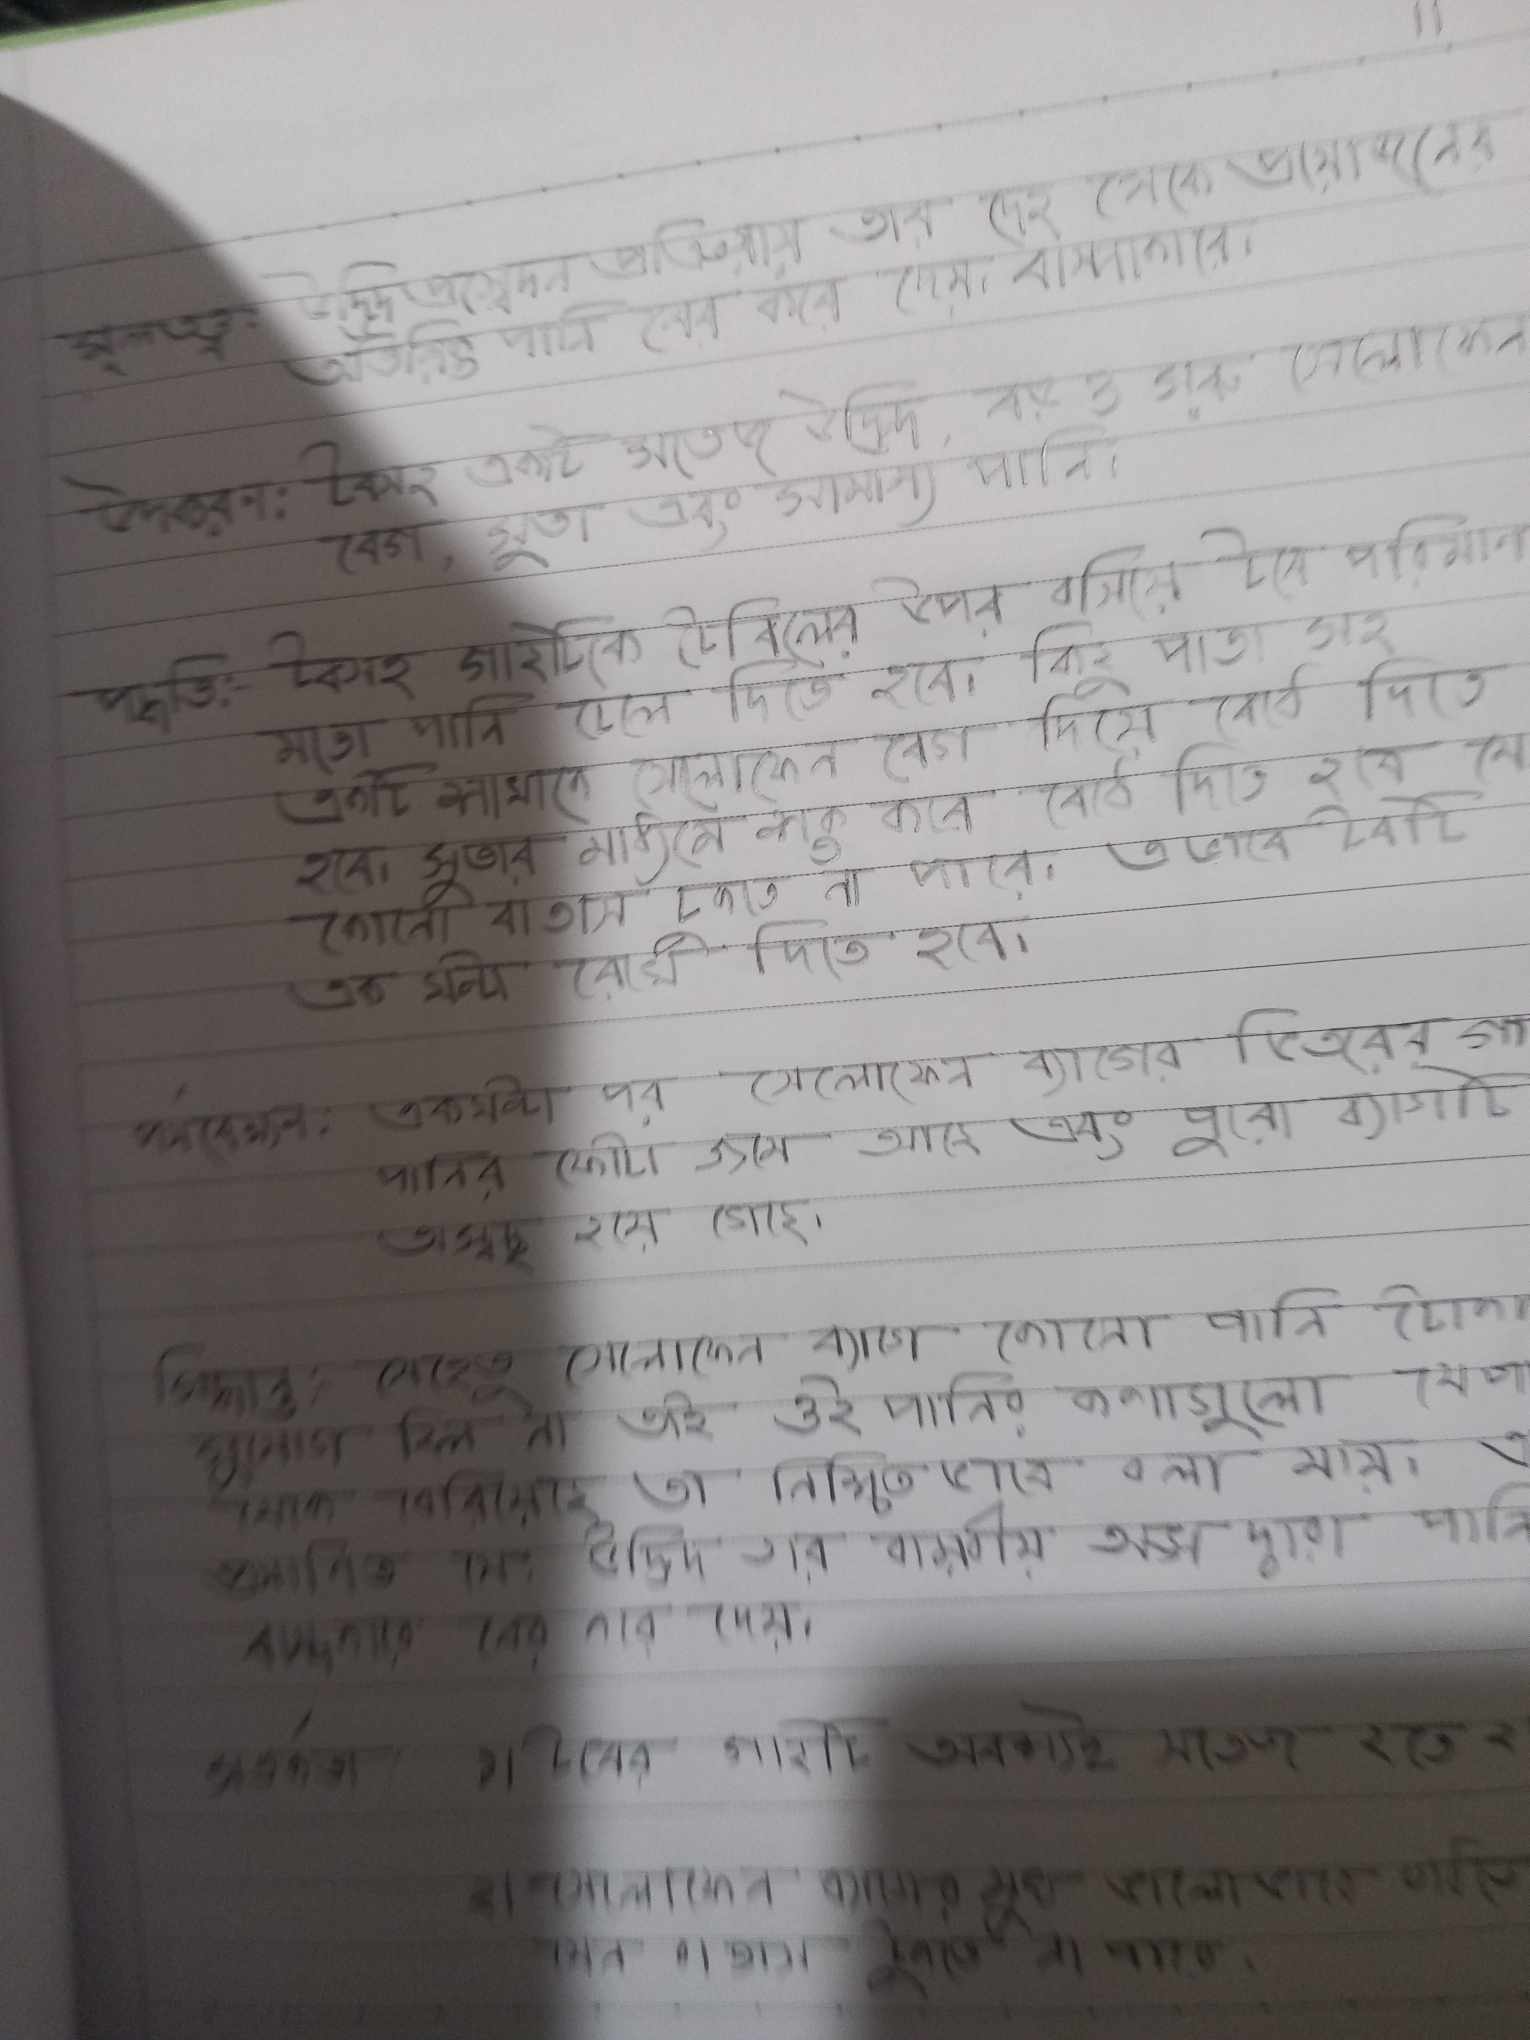 11
মূলতত্ত্ব: উদ্ভিদ প্রস্বেদন প্রক্রিয়ায় তার দেহ থেকে প্রয়োজনের
অতিরিক্ত পানি বের করে দেয়। বাষ্পাকারে।
উপকরন: টবসহ একটি সতেজ উদ্ভিদ, বড় ও চারু সেলোফেন
বেগ, সুতা এবং সামান্য পানি।
পদ্ধতি:- টবসহ গাছটিকে টেবিলের উপর বসিয়ে টবে পরিমান
মতো পানি ঢেলে দিতে হবে। কিছু পাতা সহ
একটি শাখাকে সেলোফেন বেগ দিয়ে বেধে দিতে
হবে। সুতার মাধ্যমে শক্ত করে বেধে দিতে হবে যে
কোনো বাতাস ঢুকতে না পারে। এভাবে টবটি
এক ঘন্টা রেখে দিতে হবে।
পর্যবেক্ষন: একঘন্টা পর সেলোফেন ব্যাগের ভিতরের গা
পানির ফোটা জমে আছে এবং পুরো ব্যাগটি
অস্বচ্ছ হয়ে গেছে।
সিদ্ধান্ত: যেহেতু সেলোফেন ব্যাগে কোনো পানি ঢোকা
সুযোগ ছিল না তাই ওই পানির কণাগুলো যে পা
থেকে বেরিয়েছে তা নিশ্চিতভাবে বলা যায়। এ
প্রমানিত যে, উদ্ভিদ তার বায়বীয় অঙ্গ দ্বারা পানি
বাষ্পাকারে বের করে দেয়।
সতর্কতা ১। টবের গাছটি অবশ্যই সতেজ হতে হ
২। সেলোফেন ব্যাগের মুখ ভালোভাবে
যেন বাতাস ঢুকতে না পারে।